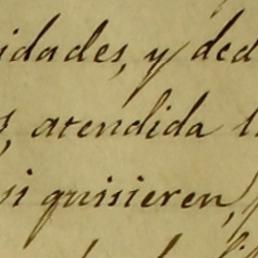 idades, y ded
s, atendida l
si quisieren,